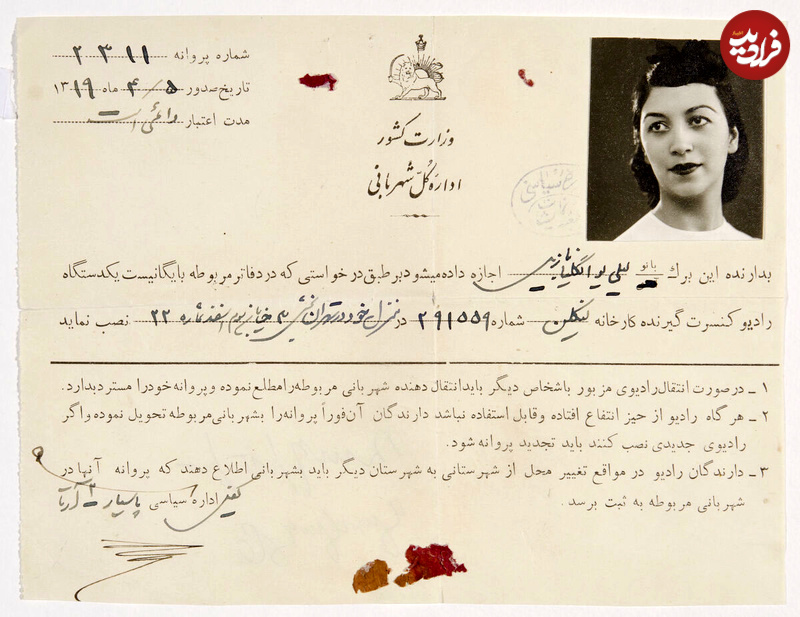 فرادید
اخبار
شماره پروانه ۲۳۱۱
تاریخ صدور ۵/۴ ماه ۱۳۱۹
مدت اعتبار دائمی است
وزارت کشور
اداره کل شهربانی
بدارنده این برك بانو لیلی اجازه داده میشود بر طبق درخواستی که در دفاتر مربوطه بایگانیست یکدستگاه
رادیو کنسرت گیرنده کارخانه شماره ۲۹۱۵۵۹ در منزل خود در تهران شماره ۲۲ نصب نماید
۱ ـ در صورت انتقال رادیوی مزبور باشخاص دیگر باید انتقال دهنده شهربانی مربوطه را مطلع نموده و پروانه خود را مسترد بدارد.
۲ ـ هر گاه رادیو از حیز انتفاع افتاده و قابل استفاده نباشد دارندگان آن فوراً پروانه را بشهربانی مربوطه تحویل نموده و اگر
رادیوی جدیدی نصب کنند باید تجدید پروانه شود.
۳ ـ دارندگان رادیو در مواقع تغییر محل از شهرستانی به شهرستان دیگر باید بشهربانی اطلاع دهند که پروانه آنها در
شهربانی مربوطه به ثبت برسد.
کفیل اداره سیاسی پاسیار ۲ آرتا